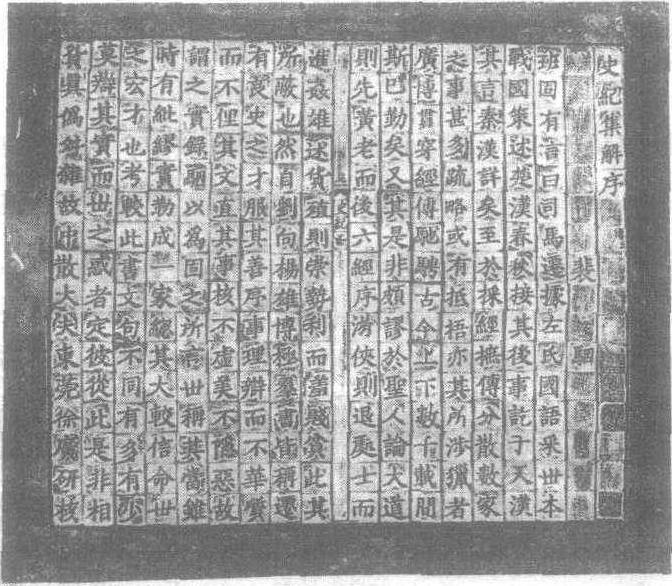 史記集解序
裴駰
班固有言曰司馬遷據左氏國語采世本
戰國策述楚漢春秋接其後事訖于天漢
其言秦漢詳矣至於採經摭傳分散數家
之事甚多疏略或有抵捂亦其所涉獵者
廣博貫穿經傳馳騁古今上下數千載間
斯已勤矣又其是非頗謬於聖人論大道
則先黃老而後六經序游俠則退處士而
進姦雄述貨殖則崇勢利而羞賤貧此其
所蔽也然自劉向揚雄博極羣書皆稱遷
有良史之才服其善序事理辯而不華質
而不俚其文直其事核不虛美不隱惡故
謂之實錄駰以為固之所言世稱其當雖
時有紕繆實勒成一家總其大較信命世
之宏才也考較此書文句不同有多有少
莫辯其實而世之惑者定彼從此是非相
貿眞僞舛雜故中散大夫東莞徐廣研核